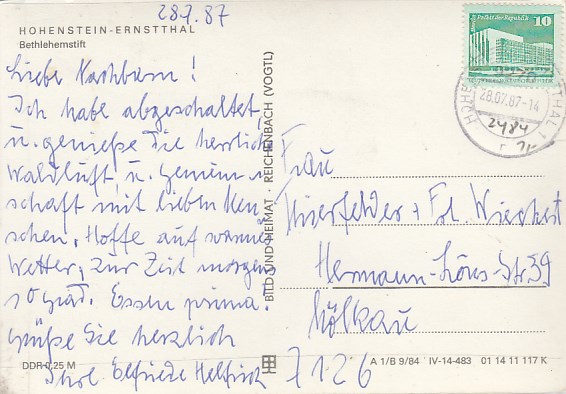 28.7.87
HOHENSTEIN-ERNSTTHAL
Bethlehemstift
Liebe Nachbarn!
Ich habe abgeschaltet
u. genieße die herrliche
Waldluft, u. Gemein-
schaft mit lieben Men-
schen, Hoffe auf warmes
Wetter, zur Zeit morgens
10 Grad. Essen prima!
Grüße Sie herzlich
Ihre Elfriede Helfrich
DDR 0,25 M
BILD UND HEIMAT · REICHENBACH (VOGTL)
Palast der Republik
10
DDR
28.07.87-14
2484
Frau
+ Frl.
Hermann-Löns-Str 39
Mölkau
7126
A 1/B 9/84 IV-14-483 01 14 11 117 K